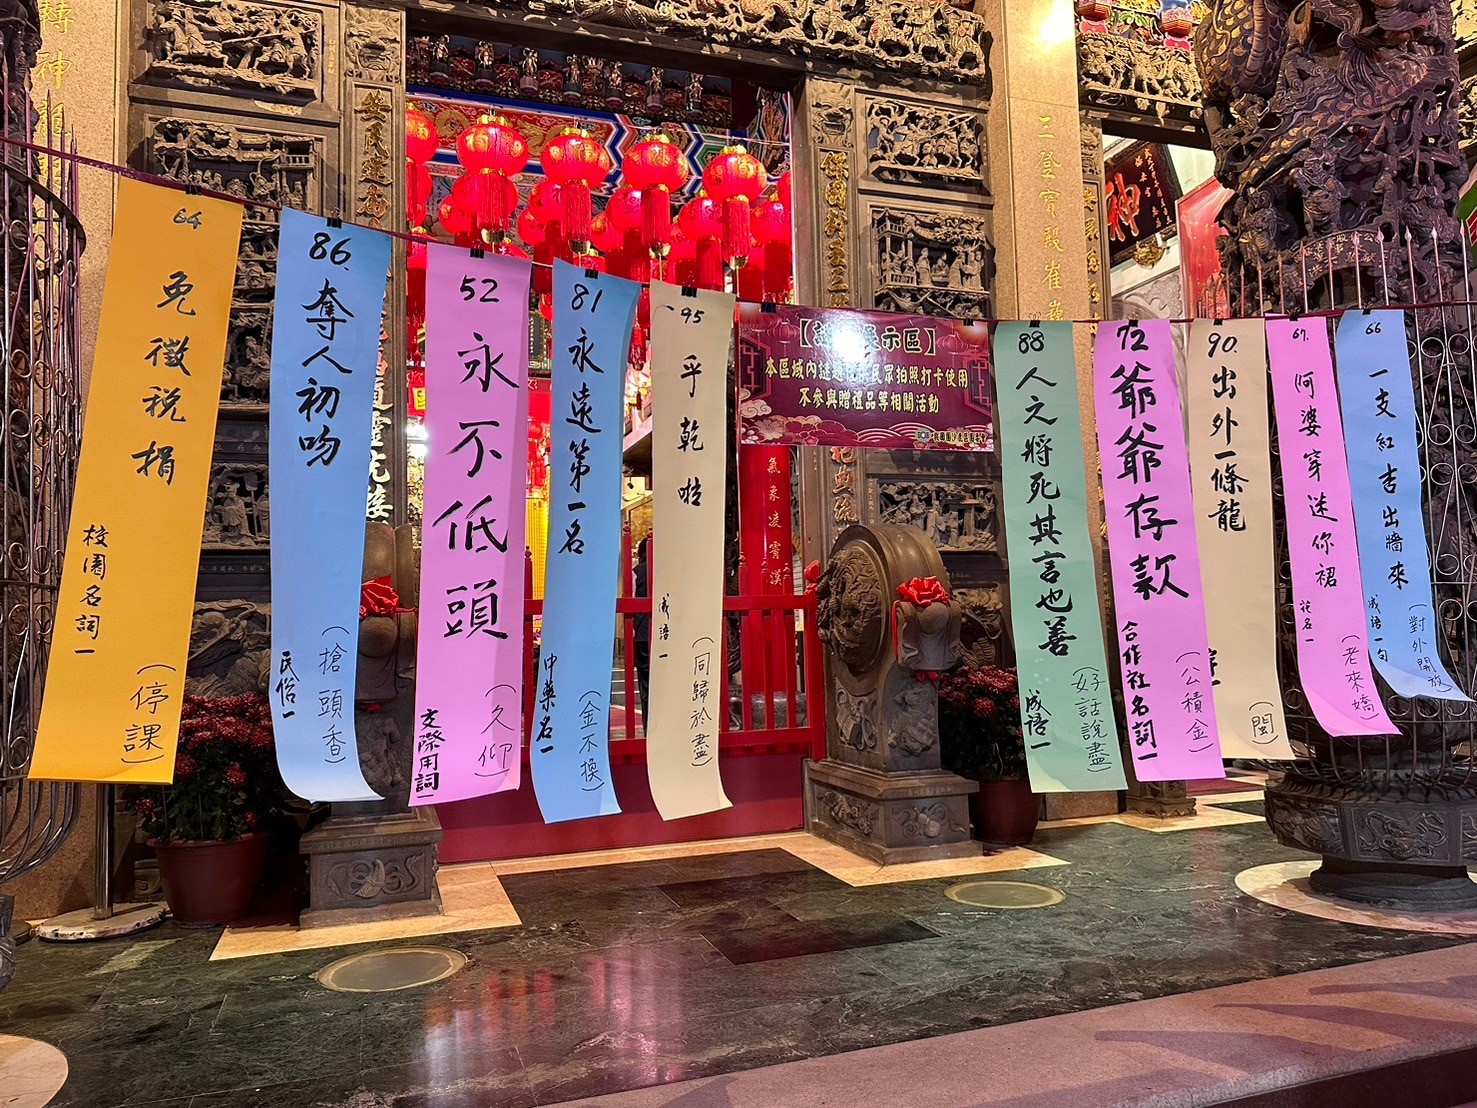 64
免徵税捐
校園名詞一
（停課）
86.
奪人初吻
民俗一
（搶頭香）
52
永不低頭
交際用詞一
（久仰）
81
永遠第一名
中藥名一
（金不換）
95
乎乾啦
成語一
（同歸於盡）
示區】
本區域內
民眾拍照打卡使用
不參與贈禮品等相關活動
88
人之將死其言也善
成語一
（好話說盡）
72
爺爺存款
合作社名詞一
（公積金）
90.
出外一條龍
（閩）
67.
阿婆穿迷你裙
花名一
（老來嬌）
66
一支紅杏出牆來
成語一句
（對外開放）
安民建西
三登寶殿崔巍
氣象凌霄漢
神